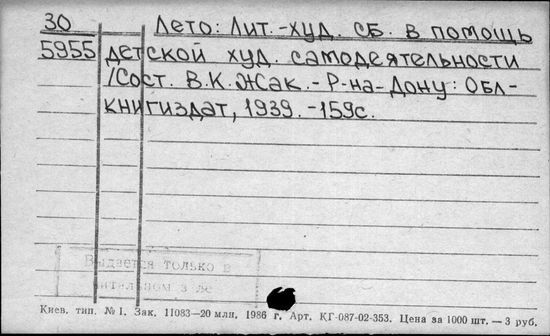 30 Лето: Лит.-худ. сб. в помощь
5955 детской худ. самодеятельности
/Сост. В.К. Жак. - Р-на-Дону: Обл-
книгиздат, 1939. - 159с.
Выдается только в
зале
Киев. тип. № 1. Зак. 11083—20 млн. 1986 г. Арт. КГ-087-02-353. Цена за 1000 шт. — 3 руб.